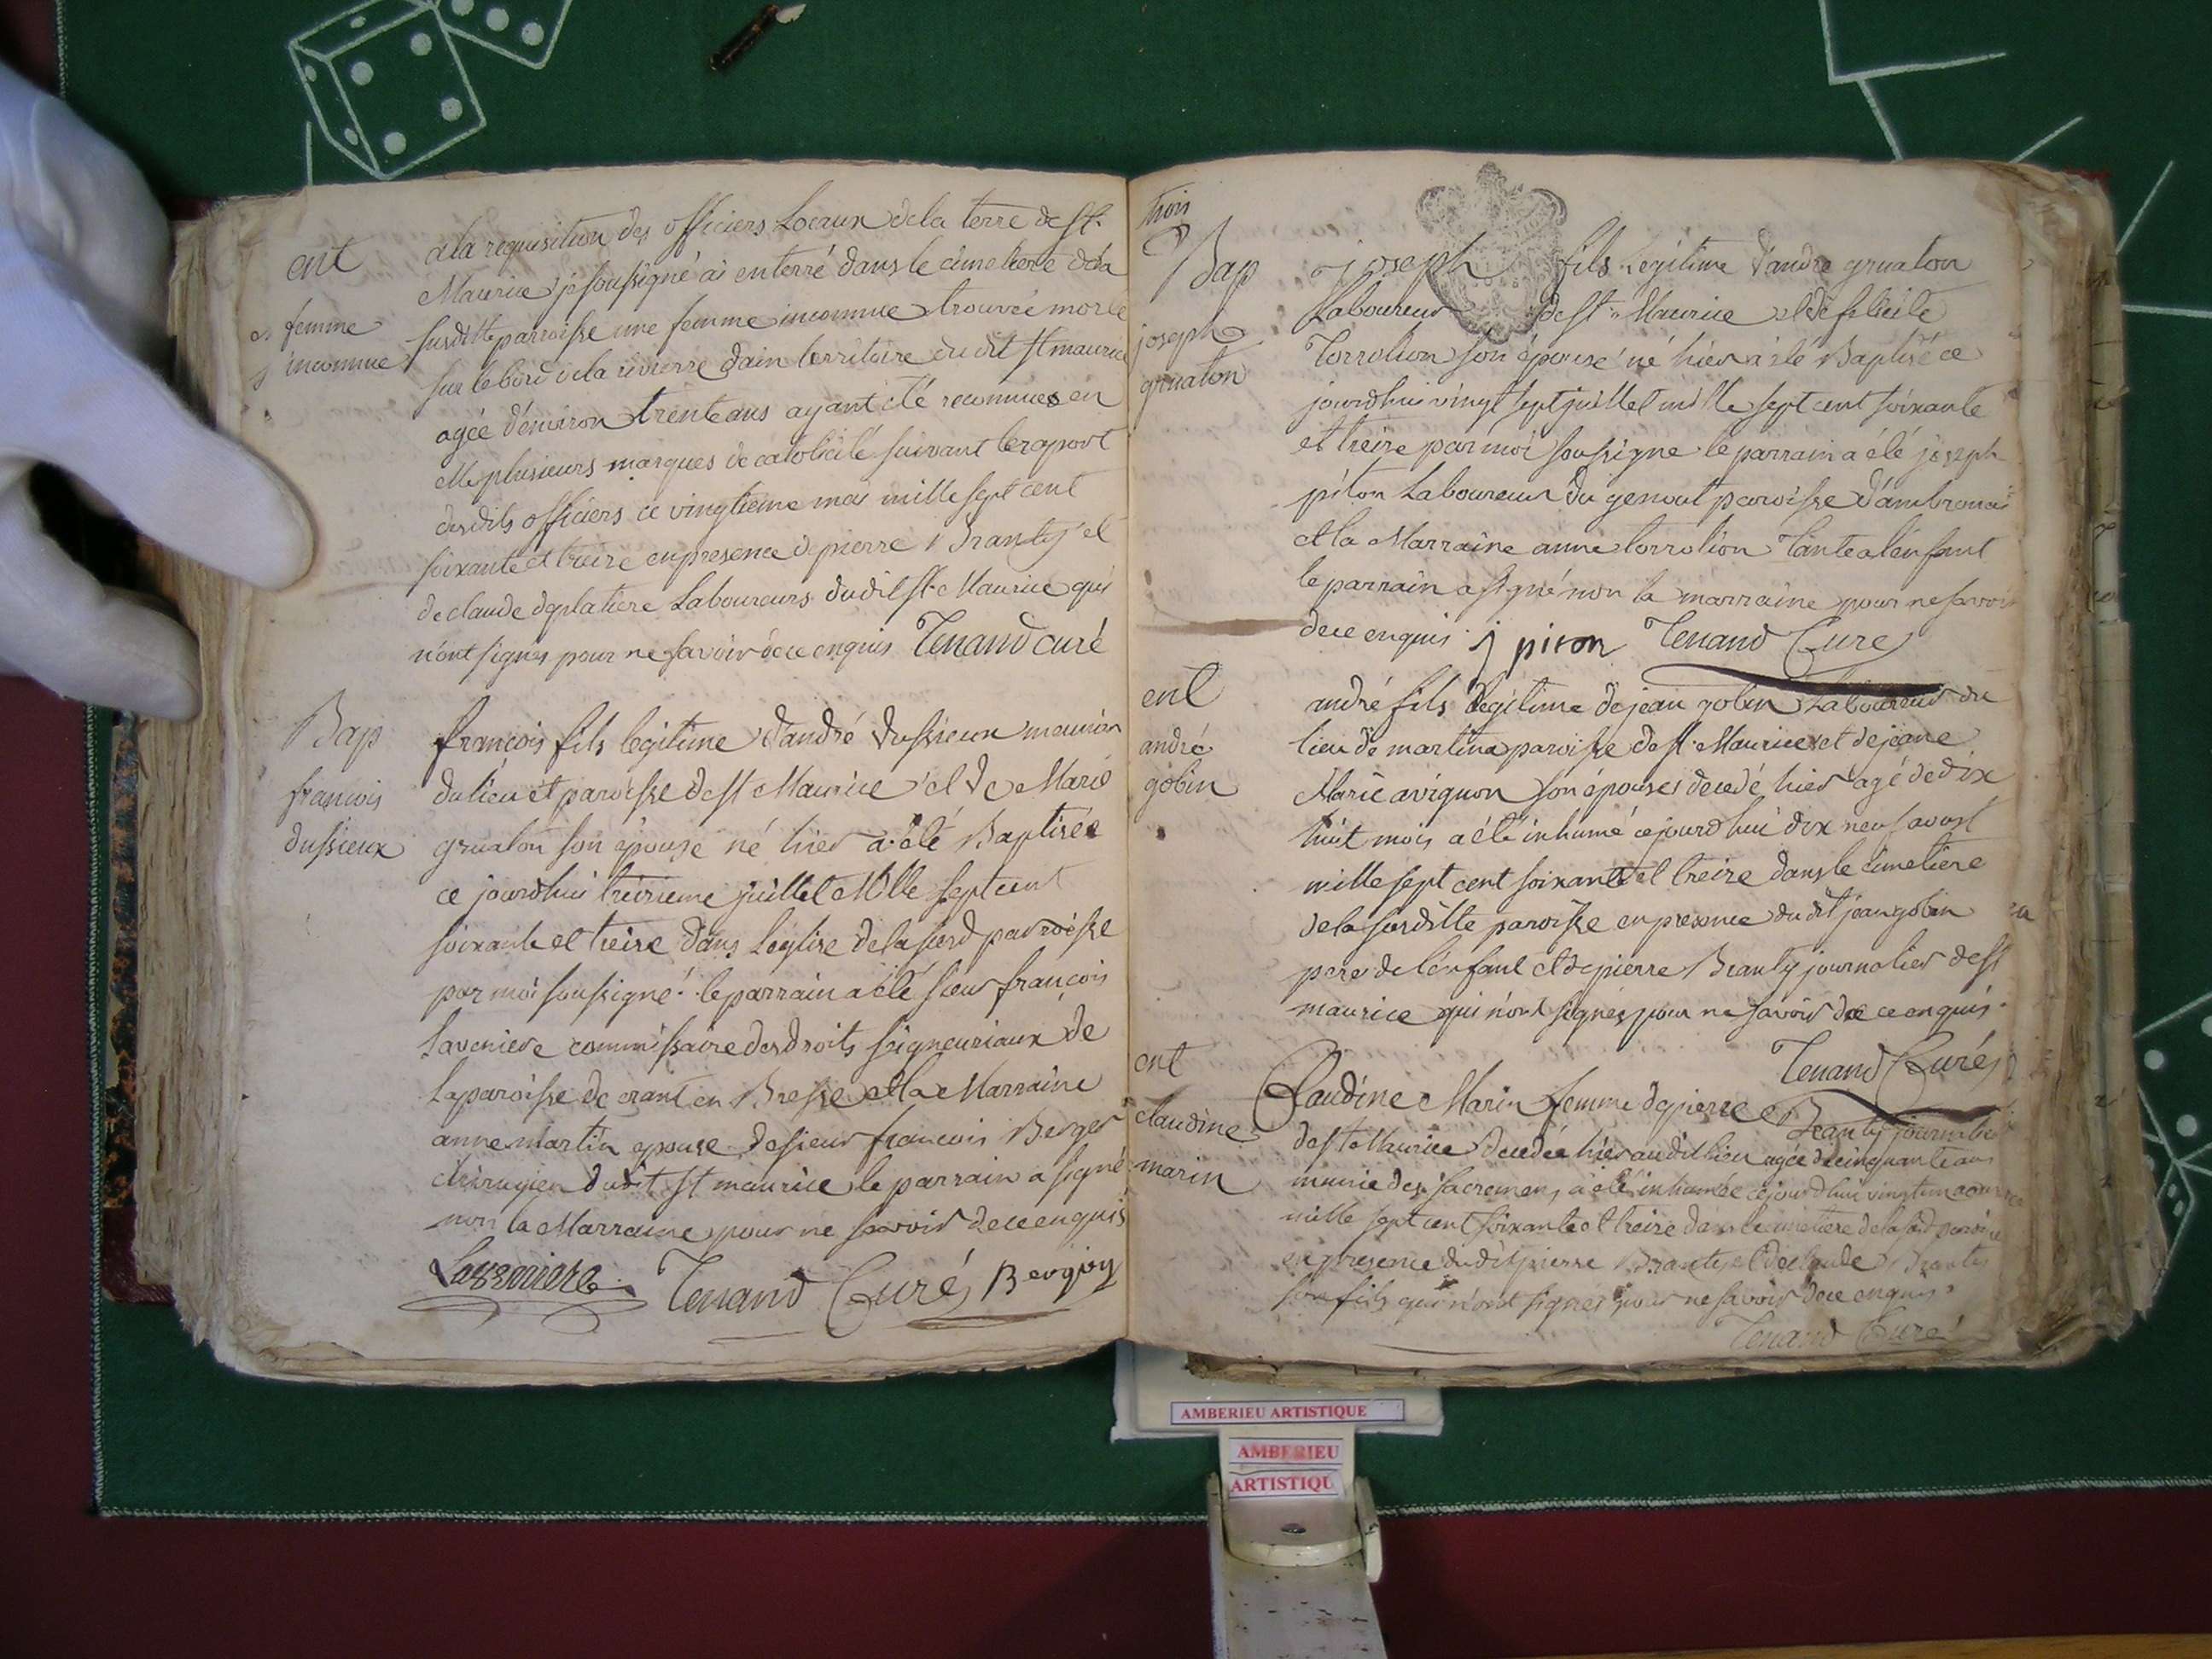 ent
femme
inconnue
a la requisition des officiers Locaux de la terre de st.
Maurice je soussigné ai enterré dans le cimetiere de la
susditte parroisse une femme inconnue trouvée morte
sur le bord de la rivierre dain territoire du dit st maurice
agée d'environ trente ans ayant été reconnues en
elle plusieurs marques de catolicité suivant le raport
desdits officiers ce vingtieme mai mille sept cent
soixante et treize en presence de pierre Branty et
de claude deplatiere Laboureurs dudit st. Maurice qui
n'ont signés pour ne savoir de ce enquis Tenand curé
Bap
francois
dussieux
françois fils legitime d'andré dussieux meunier
du lieu et paroisse de st Maurice et de Marie
gruaton son épouse né hier a été Baptisée
ce jourdhui treizieme juillet Mille sept cent
soixante et treize dans Leglise de la susd parroisse
par moi soussigné. le parrain a été sieur francois
Laveniere commissaire des droits seigneuriaux de
la paroisse de crant en Bresse et la Marraine
anne martin epouse de sieur francois Berger
chirugien dudit st maurice le parrain a signé
non la Marraine pour ne savoir de ce enquis
Laveniere Tenand Curé
trois
Bap
joseph
gruaton
joseph fils Legitime d'andre gruaton
Laboureur de st. Maurice et de felicité
Torrolion son épouse né hier a été Baptisé ce
jourdhui vingt sept juillet mille sept cent soixante
et treize par moi soussigne le parrain a été joseph
piton Laboureur du genout paroisse d'ambronai
et la Marraine anne torrolion Tante a l'enfant
le parrain a signé non la marraine pour ne savoir
de ce enquis j piton Tenand Cure
ent
andré
gobin
andré fils legitime de jean gobin Laboureur du
lieu de martina paroisse de st. Maurice et de jeane
Marie avignon son épouse decedé hier agé de dix
huit mois a été inhumé ce jourd hui dix neuf aoust
mille sept cent soixante et treize dans le cimetiere
de la susditte paroisse en presence du dit jean gobin
pere de l'enfant et de pierre Branty journalier de st
maurice qui n'ont signés pour ne savoir de ce enquis.
Tenand Curé
ent
claudine
marin
Claudine Marin femme de pierre Branty journalier
de st Maurice decedée hier audit lieu agée de cinquante ans
munie des sacremens a été inhumée ce jourd hui vingt un
mille sept cent soixante et treize dans le cimetiere de la susd paroisse
en presence du dit pierre Branty et de claude Branty
son fils qui n'ont signés pour ne savoir de ce enquis
Tenand Curé
AMBERIEU ARTISTIQUE
AMBERIEU
ARTISTIQU